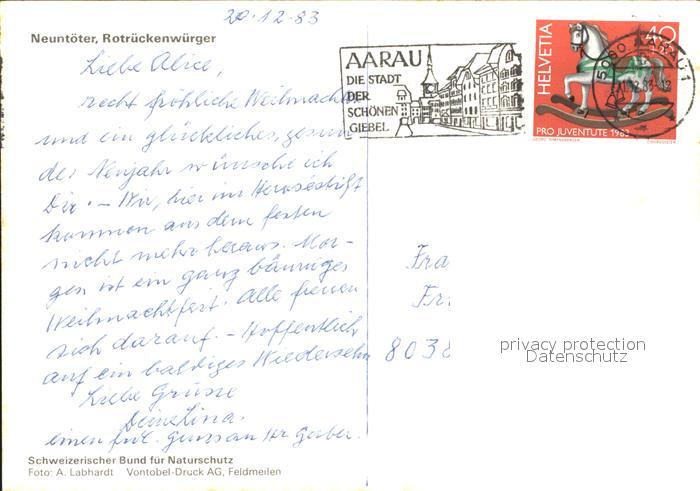 20.12.83
Neuntöter, Rotrückenwürger
Liebe Alice,
recht fröhliche Weihnachten
und ein glückliches, gesun-
des Neujahr wünsche ich
Dir. – Wir, hier im Herosestift
kommen aus dem festen
nicht mehr heraus. Mor-
gen ist ein ganz bäumiges
Weihnachtfest. Alle freuen
sich darauf. – Hoffentlich
auf ein baldiges Wiedersehn
Liebe Grüsse
Deine Lina.
einen frdl. gruss an Hr. Gerber.
Schweizerischer Bund für Naturschutz
Foto: A. Labhardt Vontobel-Druck AG, Feldmeilen
AARAU
DIE STADT
DER
SCHÖNEN
GIEBEL
HELVETIA
40
PRO JUVENTUTE 1983
5000 AARAU 1
Fra
Fr
8038
privacy protection
Datenschutz